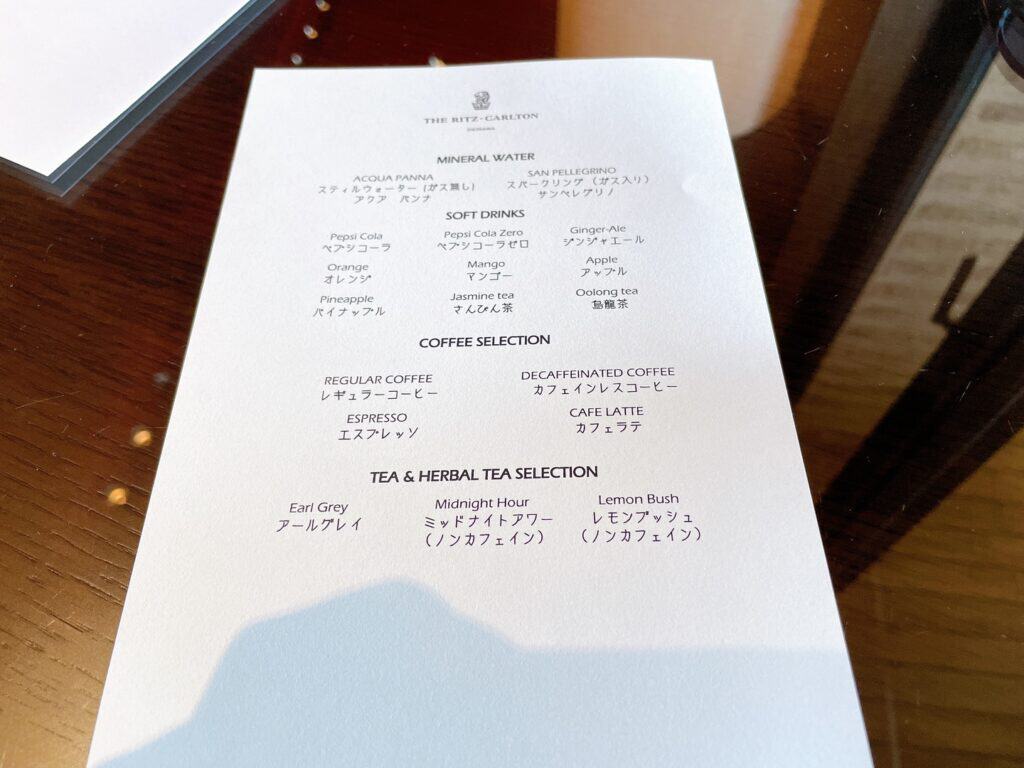 THE RITZ-CARLTON
OKINAWA
MINERAL WATER
ACQUA PANNA SAN PELLEGRINO
スティルウォーター (ガス無し) スパークリング (ガス入り)
アクア パンナ サンペレグリノ
SOFT DRINKS
Pepsi Cola Pepsi Cola Zero Ginger-Ale
ペプシコーラ ペプシコーラゼロ ジンジャエール
Orange Mango Apple
オレンジ マンゴー アップル
Pineapple Jasmine tea Oolong tea
パイナップル さんぴん茶 烏龍茶
COFFEE SELECTION
REGULAR COFFEE DECAFFEINATED COFFEE
レギュラーコーヒー カフェインレスコーヒー
ESPRESSO CAFE LATTE
エスプレッソ カフェラテ
TEA & HERBAL TEA SELECTION
Earl Grey Midnight Hour Lemon Bush
アールグレイ ミッドナイトアワー レモンブッシュ
(ノンカフェイン) (ノンカフェイン)